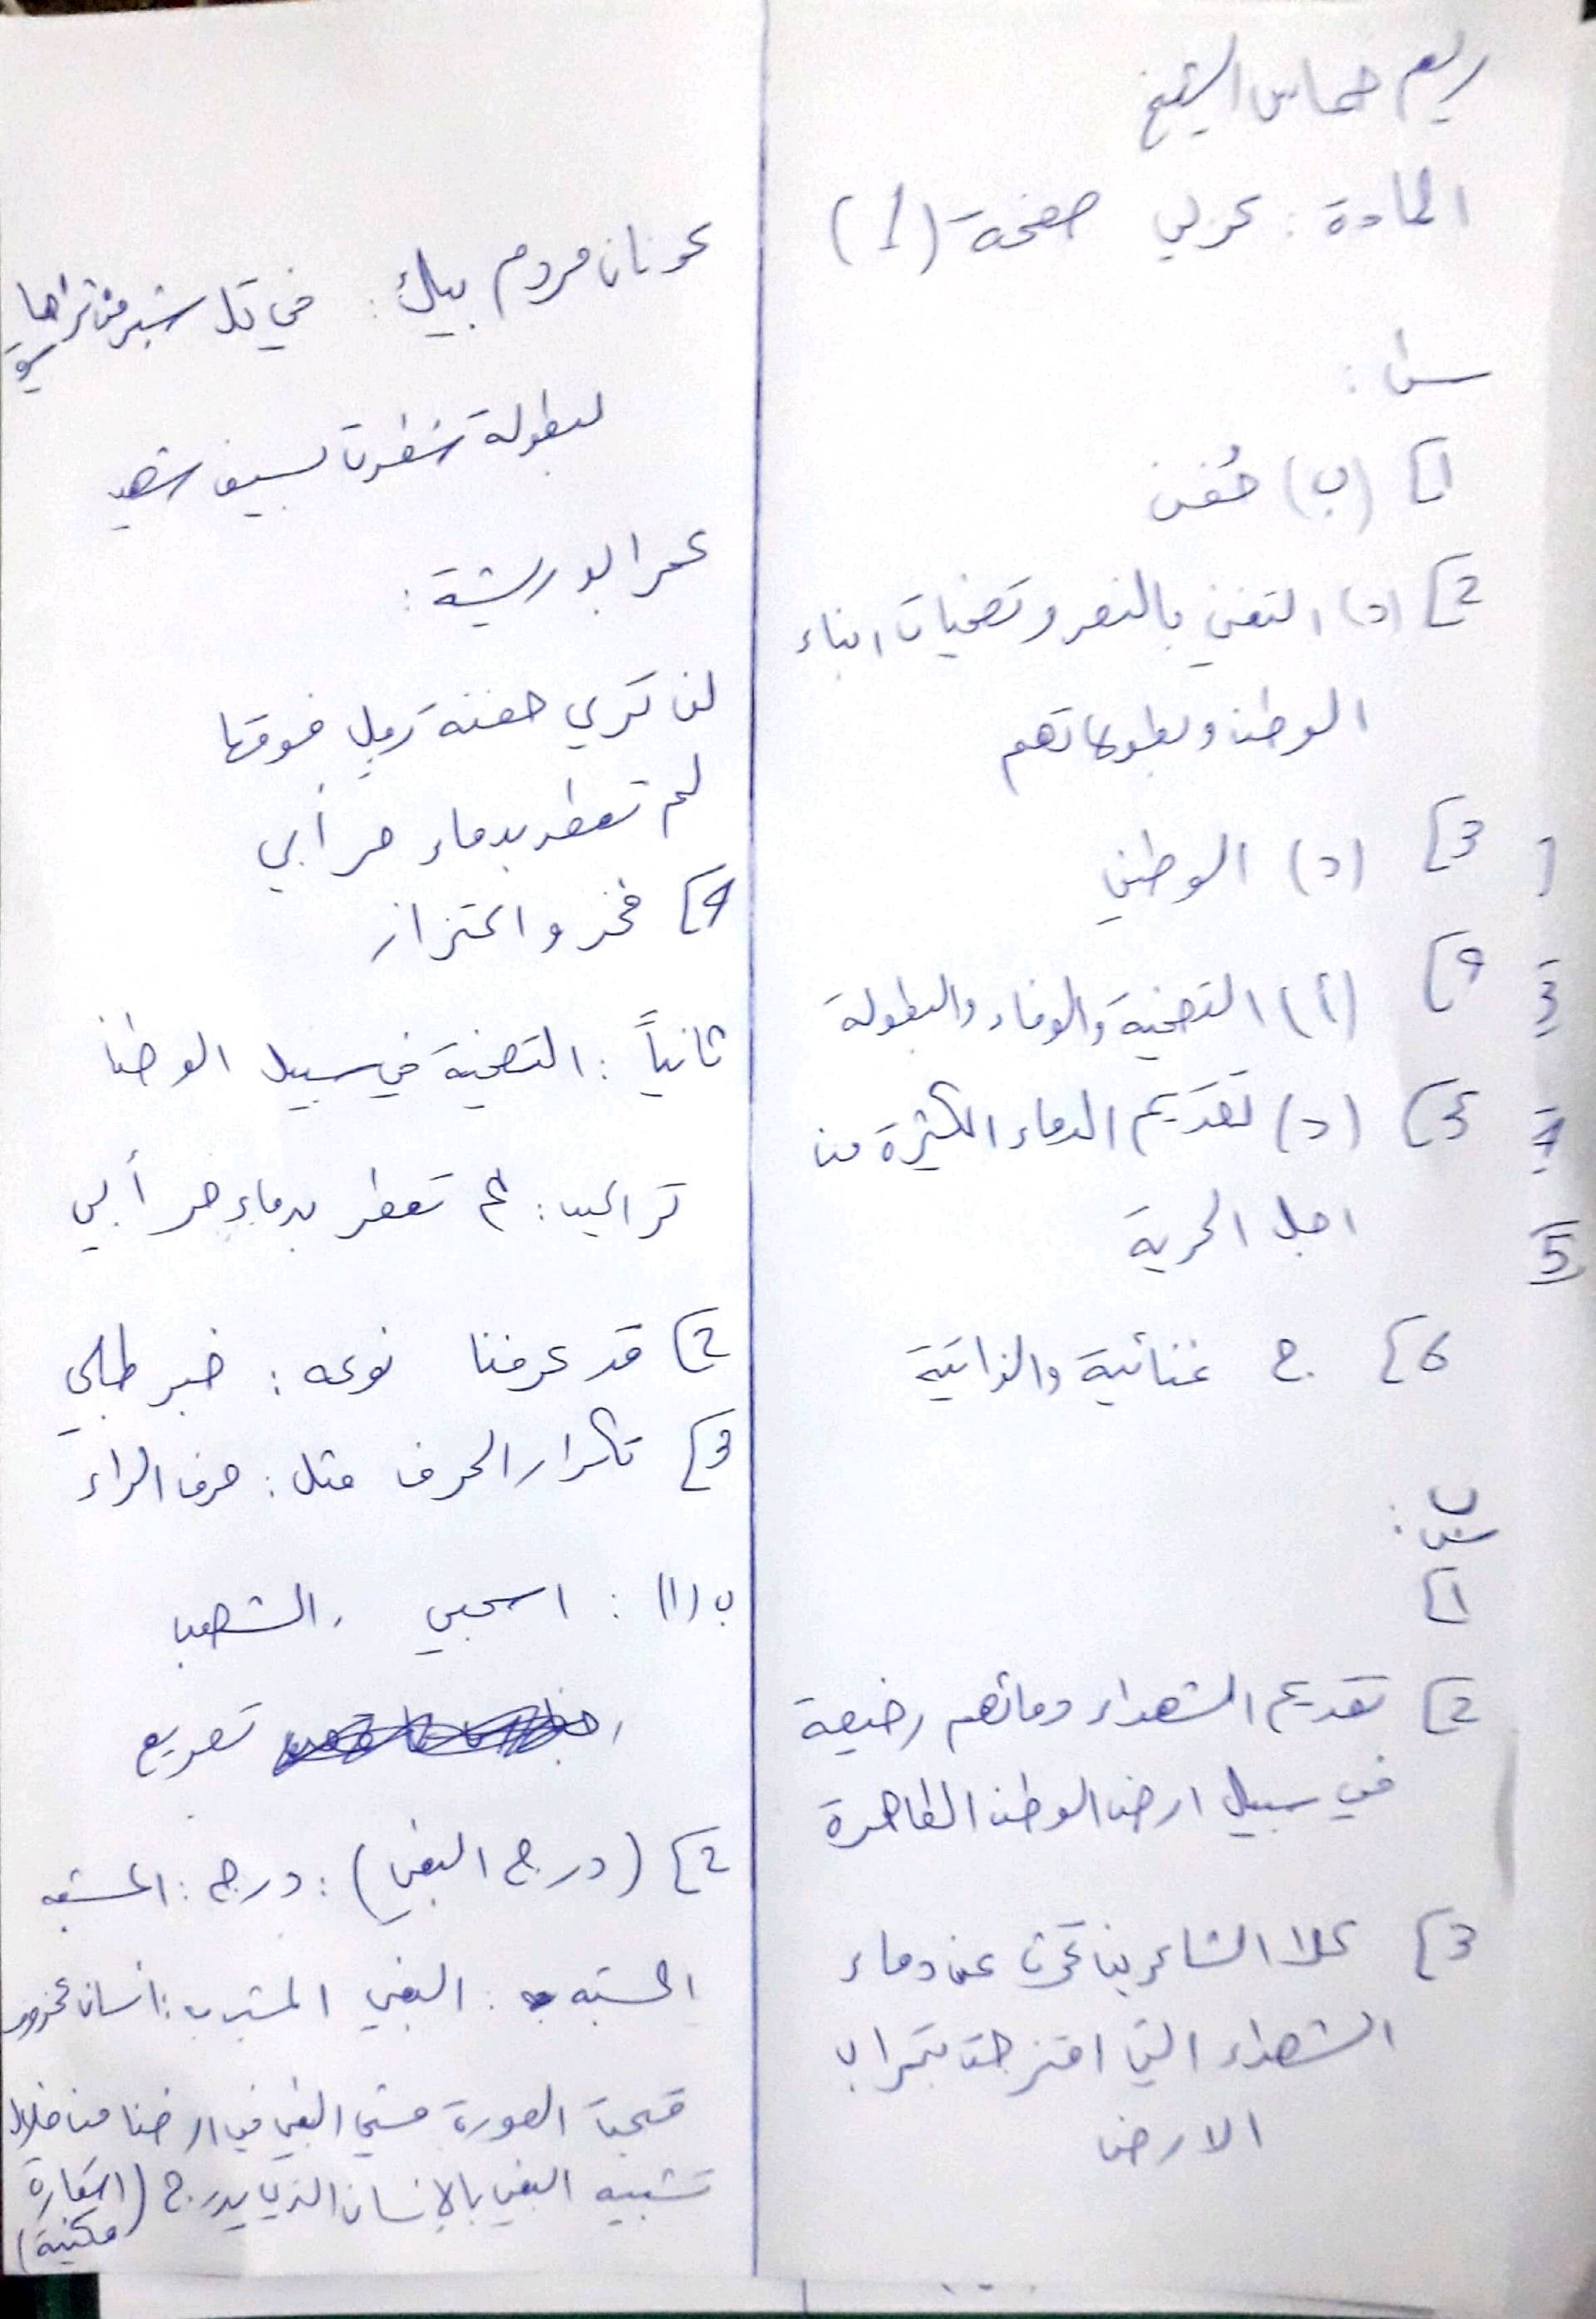 ريم حماس الشيخ
المادة: عربي صفحة (1)
س1:
1] (ب) حُفن
2] (د) التغني بالنصر وتضحيات ابناء
الوطن وبطولاتهم
3] (د) الوطني
4] (أ) التضحية والوفاء والبطولة
5] (د) تقديم الدماء الكثيرة من
اجل الحرية
6] ج غنائية والذاتية
ب
س:
1]
2] تقديم الشهداء دمائهم رخيصة
في سبيل ارض الوطن الطاهرة
3] كلا الشاعرين تحدث عن دماء
الشهداء التي امتزجت بتراب
الارض
1
3
4
5
عدنان مردم بيك: في كل شبر من ثراها
لبطولة سطرت بسيف شهيد
عمر ابو ريشة:
لن تري حفنة رمل فوقها
لم تعطر بدماء حر أبي
4] فخر واعتزاز
ثانياً: التضحية في سبيل الوطن
تراكيب: لم تعطر بدماء حر أبي
2] قد عرفنا نوعه: خبر طلبي
3] تكرار الحرف مثل: حرف الراء
ب (1): اسحبي، الشهب
تصريع
2] (درج البغي): درج: المشبه
المشبه به: البغي المشبه به: انسان محذوف
قبحت الصورة مشي البغي في ارضنا من خلال
تشبيه البغي بالإنسان الذي يدرج (استعارة
مكنية)